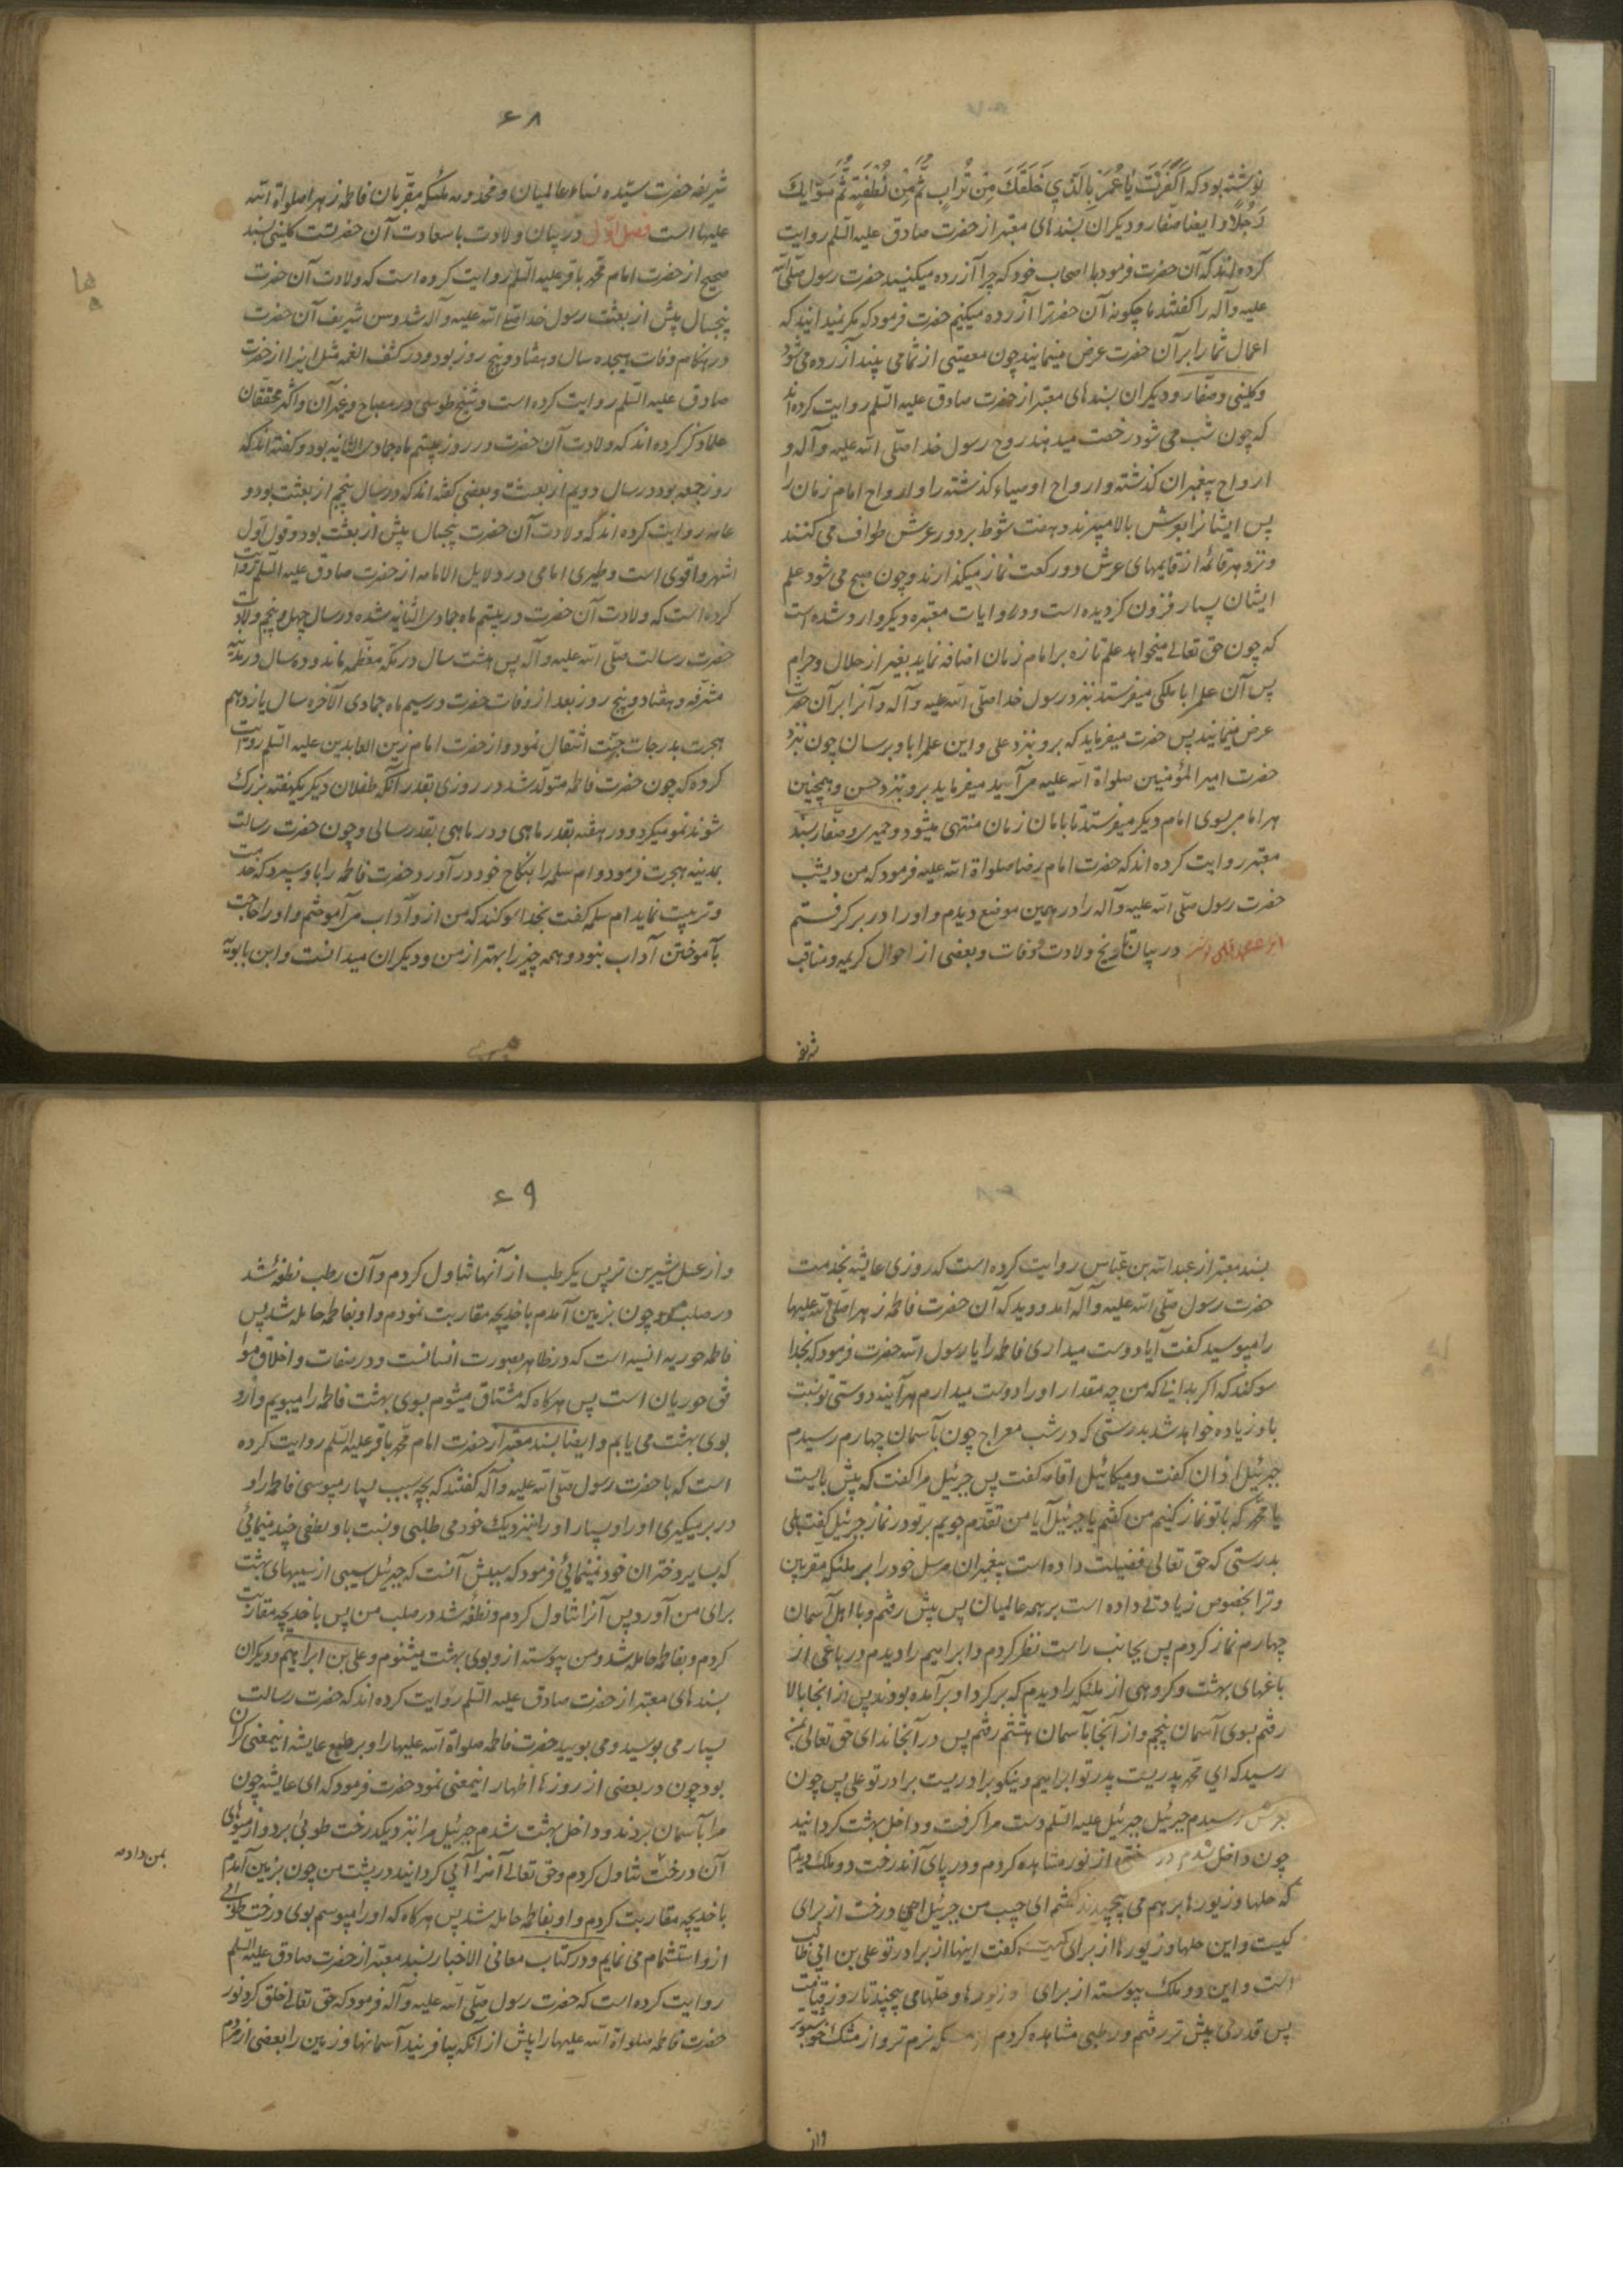 نوشته بود که اَکَفَرْتَ یَا عُمَرُ بِالَّذِی خَلَقَکَ مِنْ تُرَابٍ ثُمَّ مِنْ نُطْفَةٍ ثُمَّ سَوّٰیکَ
رَجُلًا و ایضا صفار و دیکران بسندهای معتبر از حضرت صادق علیه السّلم روایت
کرده‌اند که آن حضرت فرمود با اصحاب خود که چرا آزرده میکنید حضرت رسول صلّی الله
علیه و آله را کفتند ما چکونه آن حضرترا آزرده میکنیم حضرت فرمود که مکر نمیدانید که
اعمال شما را بر آن حضرت عرض مینمایند چون معصیتی از شما می بیند آزرده می شود
و کلینی و صفار و دیکران بسندهای معتبر از حضرت صادق علیه السّلم روایت کرده‌اند
که چون شب می شود رخصت میدهند روح رسول خدا صلّی الله علیه و آله و
ارواح پیغمبران کذشته و ارواح اوصیاء کذشته را و ارواح امام زمان را
پس ایشانرا بعرش بالا میبرند و هفت شوط بر دور عرش طواف می کنند
و نزد هر قائمهٔ از قایمهای عرش دو رکعت نماز میکذارند و چون صبح می شود علم
ایشان بسیار فزون کردیده است و در روایات معتبره دیکر وارد شده است
که چون حق تعالی میخواهد علم تازه بر امام زمان اضافه نماید بغیر از حلال و حرام
پس آن علم را با ملکی میفرستد بنزد رسول خدا صلّی الله علیه و آله و آنرا بر آن حضرت
عرض مینمایند پس حضرت میفرماید که برو بنزد علی و این علم را باو برسان چون بنزد
حضرت امیر المؤمنین صلواة الله علیه می‌آید میفرماید برو بنزد حسن و همچنین
هر امام بسوی امام دیکر میفرستد تا بامام زمان منتهی میشود و حمیری و صفار بسند
معتبر روایت کرده اند که حضرت امام رضا صلواة الله علیه فرمود که من دیشب
حضرت رسول صلّی الله علیه و آله را در همین موضع دیدم و او را در بر کرفتم
در بیان تاریخ ولادت و وفات و بعضی از احوال کریمه و مناقب
شریفه
۶۸
شریفه حضرت سیّده نساء عالمیان و مخدومه ملئکه مقرّبان فاطمه زهرا صلواة الله
علیها است فصل اوّل در بیان ولادت با سعادت آن حضرتست کلینی بسند
صحیح از حضرت امام محمّد باقر علیه السّلم روایت کرده است که ولادت آن حضرت
پنجسال پیش از بعثت رسول خدا صلّی الله علیه و آله شد و سن شریف آن حضرت
در هنکام وفات هیجده سال و هفتاد و پنج روز بود و در کشف الغمه مثل اینرا از حضرت
صادق علیه السّلم روایت کرده است و شیخ طوسی در مصباح و غیر آن و اکثر محققان
علما ذکر کرده اند که ولادت آن حضرت در روز بیستم ماه جمادی الثانیه بود و کفته‌اند که
روز جمعه بود در سال دویم از بعثت و بعضی کفته‌اند که در سال پنجم از بعثت بود و
عامه روایت کرده اند که ولادت آن حضرت پنجسال پیش از بعثت بود و قول اوّل
اشهر و اقوی است و طبری امامی در دلایل الامامه از حضرت صادق علیه السّلم روایت
کرده است که ولادت آن حضرت در بیستم ماه جمادی الثانیه شده در سال چهل و پنجم ولادت
حضرت رسالت صلّی الله علیه و آله پس هشت سال در مکّه معظّمه ماند و ده سال در مدینه
مشرّفه و هفتاد و پنج روز بعد از وفات حضرت و در سیم ماه جمادی الآخره سال یازدهم
هجرت بدرجات جنّت انتقال نمود و از حضرت امام زین العابدین علیه السّلم روایت
کرده که چون حضرت فاطمه متولد شد در روزی بقدر آنکه طفلان دیکر یکهفته بزرک
شوند نمو میکرد و در هفته بقدر ماهی و در ماهی بقدر سالی و چون حضرت رسالت
بمدینه هجرت فرمود و ام سلمه را بنکاح خود در آورد و حضرت فاطمه را باو سپرد که خدمت
و تربیت نماید ام سلمه کفت بخدا سوکند که من از و آداب می‌آموختم و او را حاجت
بآموختن آداب نبود و همه چیز را بهتر از من و دیکران میدانست و ابن بابویه
بسند معتبر از عبد الله بن عبّاس روایت کرده است که روزی عایشه بخدمت
حضرت رسول صلّی الله علیه و آله آمد و دید که آن حضرت فاطمه زهرا صلواة الله علیها
را میبوسید کفت آیا دوست میداری فاطمه را یا رسول الله حضرت فرمود که بخدا
سوکند که اکر بدانی که من چه مقدار او را دوست میدارم هر آینه دوستی تو نسبت
باو زیاده خواهد شد بدرستی که در شب معراج چون بآسمان چهارم رسیدم
جبرئیل اذان کفت و میکائیل اقامه کفت پس جبرئیل مرا کفت که پیش بایست
یا محمّد که با تو نماز کنیم من کفتم یا جبرئیل آیا من تقدّم جویم بر تو در نماز جبرئیل کفت بلی
بدرستی که حق تعالی فضیلت داده است پیغمبران مرسل خود را بر ملئکه مقربین
و ترا بخصوص زیادتی داده است بر همه عالمیان پس پیش رفتم و با اهل آسمان
چهارم نماز کردم پس بجانب راست نظر کردم و ابراهیم را دیدم در باغی از
باغهای بهشت و کروهی از ملئکه را دیدم که بر کرد او بر آمده بودند پس از انجا بالا
رفتم بسوی آسمان پنجم و از آنجا بآسمان هشتم رفتم پس در آنجا ندای حق تعالی بمن
رسید که ای محمّد پدریست پدر تو ابراهیم و نیکو برادریست برادر تو علی پس چون
بعرش رسیدم جبرئیل جبرئیل علیه السّلم دست مرا کرفت و داخل بهشت کردانید
چون داخل شدم در ختی از نور مشاهده کردم و در پای آندرخت دو ملک دیدم
که حلها و زیورها بر هم می پیچیدند کفتم ای حبیب من جبرئیل این درخت از برای
کیست و این حلها و زیورها از برای کیست کفت اینها از برادر تو علی بن ابی طالب
است و این دو ملک پیوسته از برای او زیورها و حلّها می پیچند تا روز قیامت
پس قدری پیش تر رفتم و رطبی مشاهده کردم از مسکه نرم تر و از مشک خوشبوتر
و از
۶۹
و از عسل شیرین تر پس یک رطب از آنها تناول کردم و آن رطب نطفهٔ شد
در صلب من و چون بزمین آمدم با خدیجه مقاربت نمودم و او بفاطمه حامله شد پس
فاطمه حوریه انسیه است که در ظاهر بصورت انسانست و در صفات و اخلاق موا
فق حوریان است پس هرکاه که مشتاق میشوم بسوی بهشت فاطمه را میبویم و ازو
بوی بهشت می یابم و ایضا بسند معتبر از حضرت امام محمّد باقر علیه السّلم روایت کرده
است که با حضرت رسول صلّی الله علیه و آله کفتند که بچه سبب بسیار میبوسی فاطمه را و
در بر میکیری او را و بسیار او را بنزدیک خود می طلبی و نسبت باو لطفی چند مینمائی
که بسایر دختران خود نمینمائی فرمود که سببش آنست که جبرئیل سیبی از سیبهای بهشت
برای من آورد پس آنرا تناول کردم و نطفه شد در صلب من پس با خدیجه مقاربت
کردم و بفاطمه حامله شد و من پیوسته از و بوی بهشت میشنوم و علی بن ابراهیم و دیکران
بسندهای معتبر از حضرت صادق علیه السّلم روایت کرده اند که حضرت رسالت
بسیار می بوسید و می بویید حضرت فاطمه صلواة الله علیها را و بر طبع عایشه اینمعنی کران
بود چون در بعضی از روزها اظهار اینمعنی نمود حضرت فرمود که ای عایشه چون
مرا بآسمان بردند و داخل بهشت شدم جبرئیل مرا بنزدیک درخت طوبی برد و از میوهای
آن درخت تناول کردم و حق تعالی آنرا آبی کردانید در پشت من چون بزمین آمدم
بمن داد
با خدیجه مقاربت کردم و او بفاطمه حامله شد پس هرکاه که او را میبوسم بوی درخت طوبی
از و استشمام می نمایم و در کتاب معانی الاخبار بسند معتبر از حضرت صادق علیه السلم
روایت کرده است که حضرت رسول صلّی الله علیه و آله فرمود که حق تعالی خلق کرد نور
حضرت فاطمه صلواة الله علیها را پیش از آنکه بیافریند آسمانها و زمین را بعضی از مردم